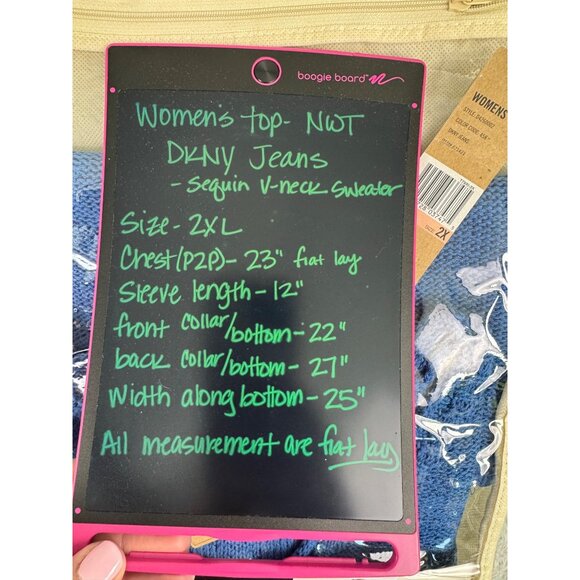 boogie board™
Women's top- NWT
DKNY Jeans
- Sequin V-neck sweater
Size- 2XL
Chest(P2P)- 23" flat lay
Sleeve length- 12"
front collar/bottom- 22"
back collar/bottom- 27"
Width along bottom- 25"
All measurement are flat lay
WOMENS
DKNY JEANS
SIZE: 2X